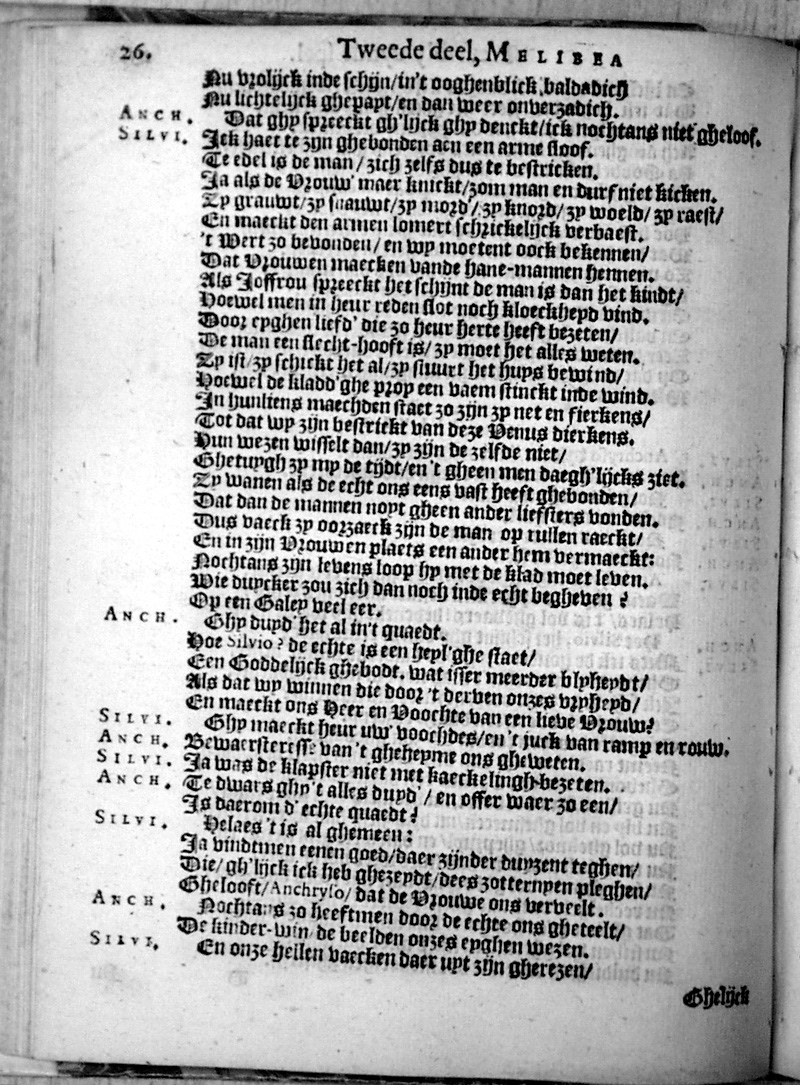 26. Tweede deel, MELIBEA
Nu vrolijck inde schijn/in't ooghenblick baldadich
Nu lichtelijck ghepapt/en dan weer onverzadich.
ANCH. Dat ghy spreeckt gh'lijck ghy denckt/ick nochtans niet gheloof.
SILVI. Ick haet te zijn ghebonden aen een arme sloof.
Te edel is de man/zich zelfs dus te bestricken.
Ja als de Vrouw' maer knickt/zom man en durf niet kicken.
Zy grauwt/zy snauwt/zy mord'/zy knord/zy woeld/zy raest/
En maeckt den armen lomert schrickelijck verbaest.
't Wert zo bevonden/en wy moetent oock bekennen/
Dat Vrouwen maecken vande hane-mannen hennen.
Als Joffrou spreeckt het schijnt de man is dan het kindt/
Hoewel men in heur reden slot noch kloeckheyd vind.
Door eyghen liefd' die zo heur herte heeft bezeten/
De man een slecht-hooft is/zy moet het alles weten.
Zy ist/zy schickt het al/zy stuurt het huys bewind/
Hoewel de kladd'ghe prop een vaem stinckt inde wind.
In hunliens maechden staet zo zijn zy net en fierkens/
Tot dat wy zijn bestrickt van deze Venus dierkens.
Hun wezen wisselt dan/zy zijn de zelfde niet/
Ghetuygh zy my de tijdt/en 't gheen men daegh'lijcks ziet.
Zy wanen als de echt ons eens vast heeft ghebonden/
Dat dan de mannen noyt gheen ander liefsters vonden.
Dus vaeck zy oorzaeck zijn de man op tullen raeckt/
En in zijn Vrouwen plaets een ander hem vermaeckt:
Nochtans zijn levens loop hy met de klad moet leven.
Wie duycker zou zich dan noch inde echt begheven?
Op een Galey veel eer.
ANCH. Ghy duyd' het al in't quaedt.
Hoe Silvio? de echte is een heyl'ghe staet/
Een Goddelijck ghebodt. wat isser meerder blyheydt/
Als dat wy winnen die door 't derven onzes vryheyd/
En maeckt ons Heer en Voochte van een lieve Vrouw?
SILVI. Ghy maeckt heur uw' voochdes/en 't juck van ramp en rouw.
ANCH. Bewaersteresse van 't gheheyme ons gheweten.
SILVI. Ja was de klapster niet met kaeckelingh-bezeten.
ANCH. Te dwars ghy't alles duyd'/en offer waer zo een/
Is daerom d'echte quaedt?
SILVI. Helaes 't is al ghemeen:
Ja vindtmen eenen goed/daer zijnder duyzent teghen/
Die/gh'lijck ick heb ghezeydt/dees zotternyen pleghen/
Ghelooft/Anchryso/dat de Vrouwe ons verveelt.
ANCH. Nochtans zo heeftmen door de echte ons gheteelt/
De kinder-win/de beelden onzes eyghen wezen.
SILVI. En onze heilen vaecken daer uyt zijn gherezen/
Ghelijck